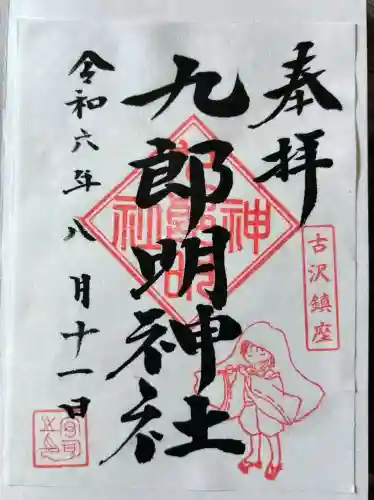 奉拝
古沢鎮座
九郎明神社
令和六年八月十一日